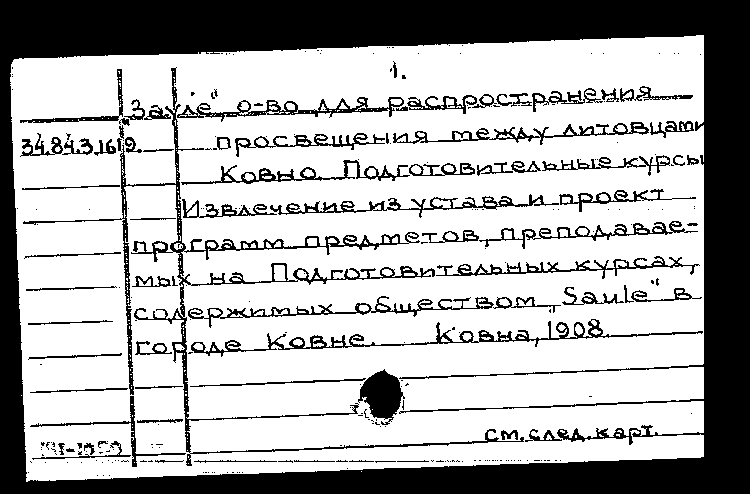 1.
"Зауле", о-во для распространения
34.84.3.1619. просвещения между литовцами
Ковно. Подготовительные курсы
Извлечение из устава и проект
программ предметов, преподавае-
мых на Подготовительных курсах,
содержимых обществом "Saule" в
городе Ковне. Ковна, 1908.
см. след. карт.